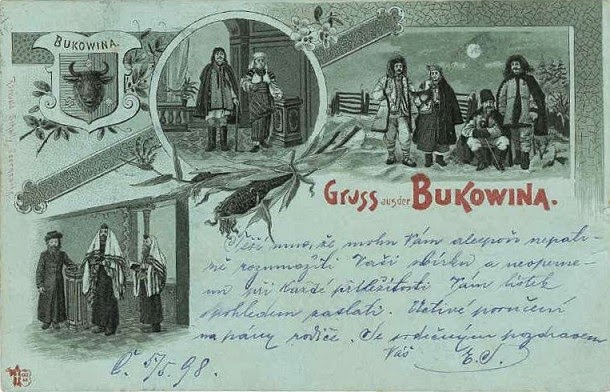 BUKOWINA.
GRUSS aus der BUKOWINA.
Těší mne, že mohu Vám alespoň nepatr-
ně rozmnožiti Vaši sbírku a neopome-
nu při každé příležitosti Vám lístek
pohledem zaslati. Uctivé poručení
na pány rodiče. Se srdečným pozdravem
Váš E. S.
Č. 5/5 98.